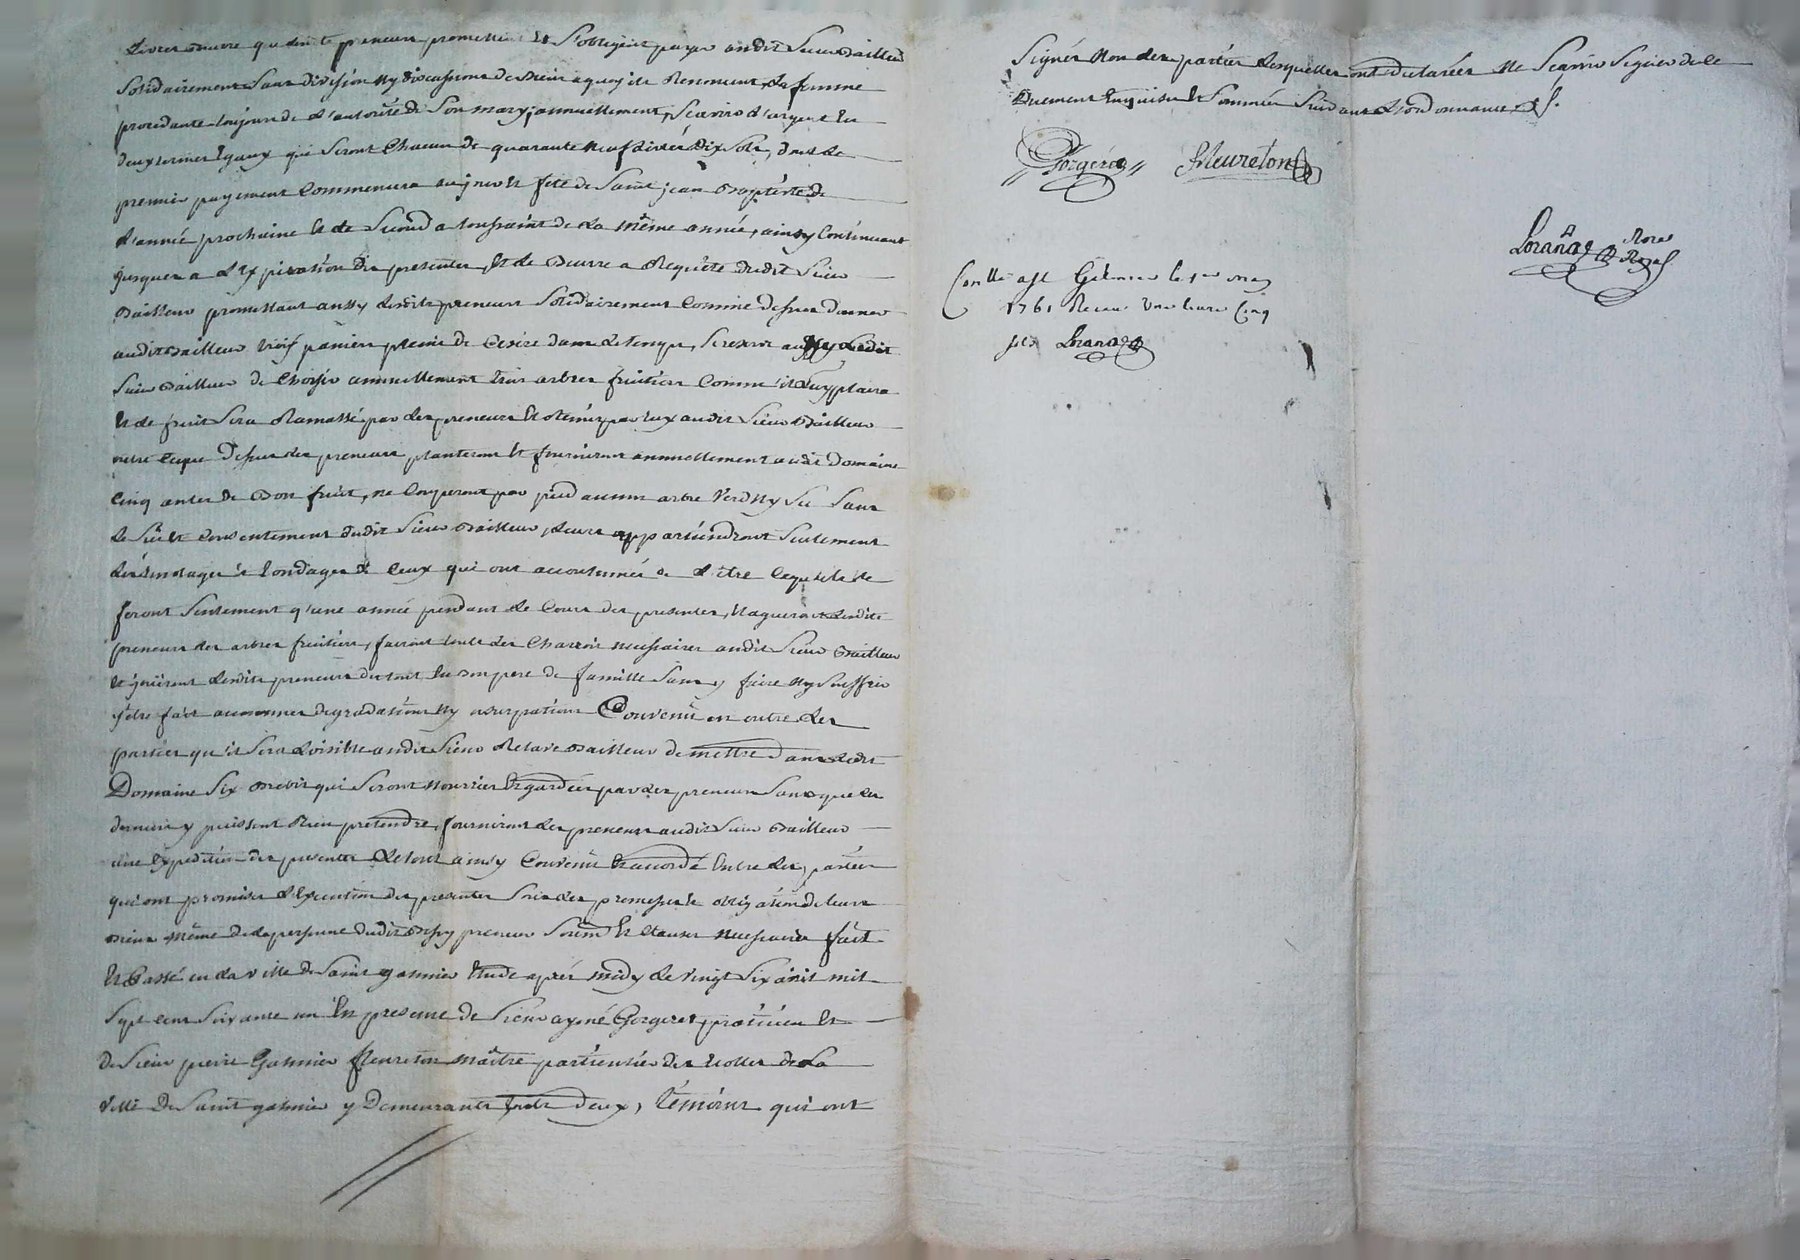 Livres œuvre que les preneurs promettent et s'obligent payer audit Sieur Bailleur
Solidairement Sans division ny discussions de biens a quoy ils Renoncent, la femme
procedante toujours de l'autorité de Son mary, annuellement, Scavoir d'argent En
deux termes Egaux qui Seront Chacun de quarante neuf livres dix Sols, dont Le
premier payement Commencera au jour et fete de Saint jean Baptiste de
L'année prochaine et Le Second a toussaint de La même année, ainsy Continuant
jusques a L'Expiration des presentes, et Le Beurre a Requête dudit Sieur
Bailleur promettant aussy Lesdits preneurs Solidairement Comme dessus donner
audit Bailleur trois paniers pleins de Cerise dans Le temps, Se reserve aussy Ledit
Sieur Bailleur de Choisir annuellement trois arbres fruitiers Comme il Luy plaira
et Le fruit Sera Ramassé par Les preneurs et par Eux audit Sieur Bailleur
outre Ce que dessus Les preneurs planteront et fourniront annuellement audit Domaine
Cinq antes de Bon fruit, ne Couperont par pied aucun arbre Verd ny Sec Sans
Le Sçu et Consentement dudit Sieur Bailleur, Leurs appartiendront Seulement
Les Emolages et Tondages de Ceux qui ont accoutumés de L'être Ce qu'ils ne
feront Seulement q'une année pendant Le Cours des presentes, Elagueront Lesdits
preneurs Les arbres fruitiers, fairont touts Les Charrois necessaires audit Sieur Bailleur
et jouiront Lesdits preneurs du tout En Bon pere de famille Sans y faire ny Souffrir
y être fait aucunnes degradations ny usurpations Convenu en outre Les
parties qu'il Sera Loisible audit Sieur Bailleur de mettre dans Ledit
Domaine Six Brebis qui Seront nourries Et gardées par Les preneurs Sans que Les
derniers y puissent Rien pretendre, fourniront Les preneurs audit Sieur Bailleur
une Expedition des presentes Le tout ainsy Convenu Et accordé Entre Les parties
qui ont promises L'Execution des presentes Sous Les promesses et obligation de Leurs
Biens même de La personne dudit preneur Soumis Et Clauses necessaires fait
Et Passé en La Ville de Saint galmier Etude après midy Le Vingt Six avril mil
Sept Cent Soixante un En presence de Sieur aymé Gorgeret, praticien Et
de Sieur pierre Galmier fleureton maître particulier des Ecolles de La
Ville De Saint galmier y Demeurants touts deux, témoins qui ont
Signés Non Les parties Lesquelles ont declarées Ne Scavoir Signer de Ce
Duement Enquises Et Sommées Suivant L'ordonnance
Gorgeret
fleureton
Loranas Nore Royal
Conllé a St Galmier le 1er may
1761 Receu Une livre Cinq
sols Loranas